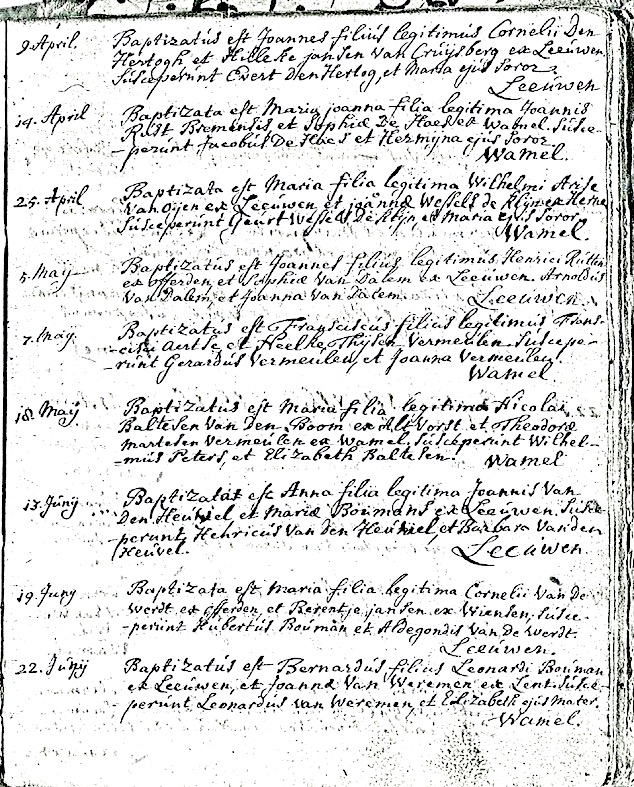 9. April. Baptizatus est Joannes filius legitimus Cornelii Den
Hertogh et Hilleke jansen van Cruijsberg ex Leeuwen
Susceperunt Evert Den Hertog, et Maria ejus soror.
Leeuwen
14. April Baptizata est Maria joanna filia legitima Joannis
Rust Bremensis, et Sophiæ De Haes ex Wamel. Susce-
-perunt Jacobus De Haes et Hermijna ejus soror
Wamel.
25. April Baptizata est Maria filia legitima Wilhelmi Arise
Van Oijen ex Leeuwen, et joannæ Wessels de Klijn ex
Susceperunt Geurt Wessels De Klijn, et Maria ejus soror
Wamel.
5. Maij Baptizatus est Joannes filius legitimus Henrici Rutten
ex offerden, et Sophiæ van Dalem ex Leeuwen. Arnoldus
Van Dalem, et Joanna van Dalem.
Leeuwen.
7. Maij. Baptizatus est Fransciscus filius legitimus Frans-
-cisci Aertse, et Heelke Thijsen Vermeulen. Suscepe-
-runt Gerardus Vermeulen, et Joanna Vermeulen.
Wamel
18. Maij Baptizatus est Maria filia legitima Nicolai
Baltesen van den Boom ex Vorst et Theodoræ
Martesen Vermeulen ex Wamel, Susceperunt Wilhel-
-mus Peters, et Elizabeth Baltesen.
Wamel
13. Junij Baptizatat est Anna filia legitima Joannis Van
Den Heuvel et Mariæ Boumans ex Leeuwen. Susce-
perunt Henricus van den Heuvel, et Barbara Vanden
Heuvel.
Leeuwen
19. Juny Baptizata est Maria filia legitima Cornelii Van de
Werdt ex offerden, et Berentje jansen ex Wiensen, Susce-
-perunt Hubertus Bouman et Aldegondis van de Werdt.
Leeuwen.
22. Junij Baptizatus est Bernardus filius Leonardi Bouman
ex Leeuwen, et Joannæ Van Weremen ex Lent. Susce-
-perunt Leonardus van Weremen, et Elizabeth ejus Mater.
Wamel.